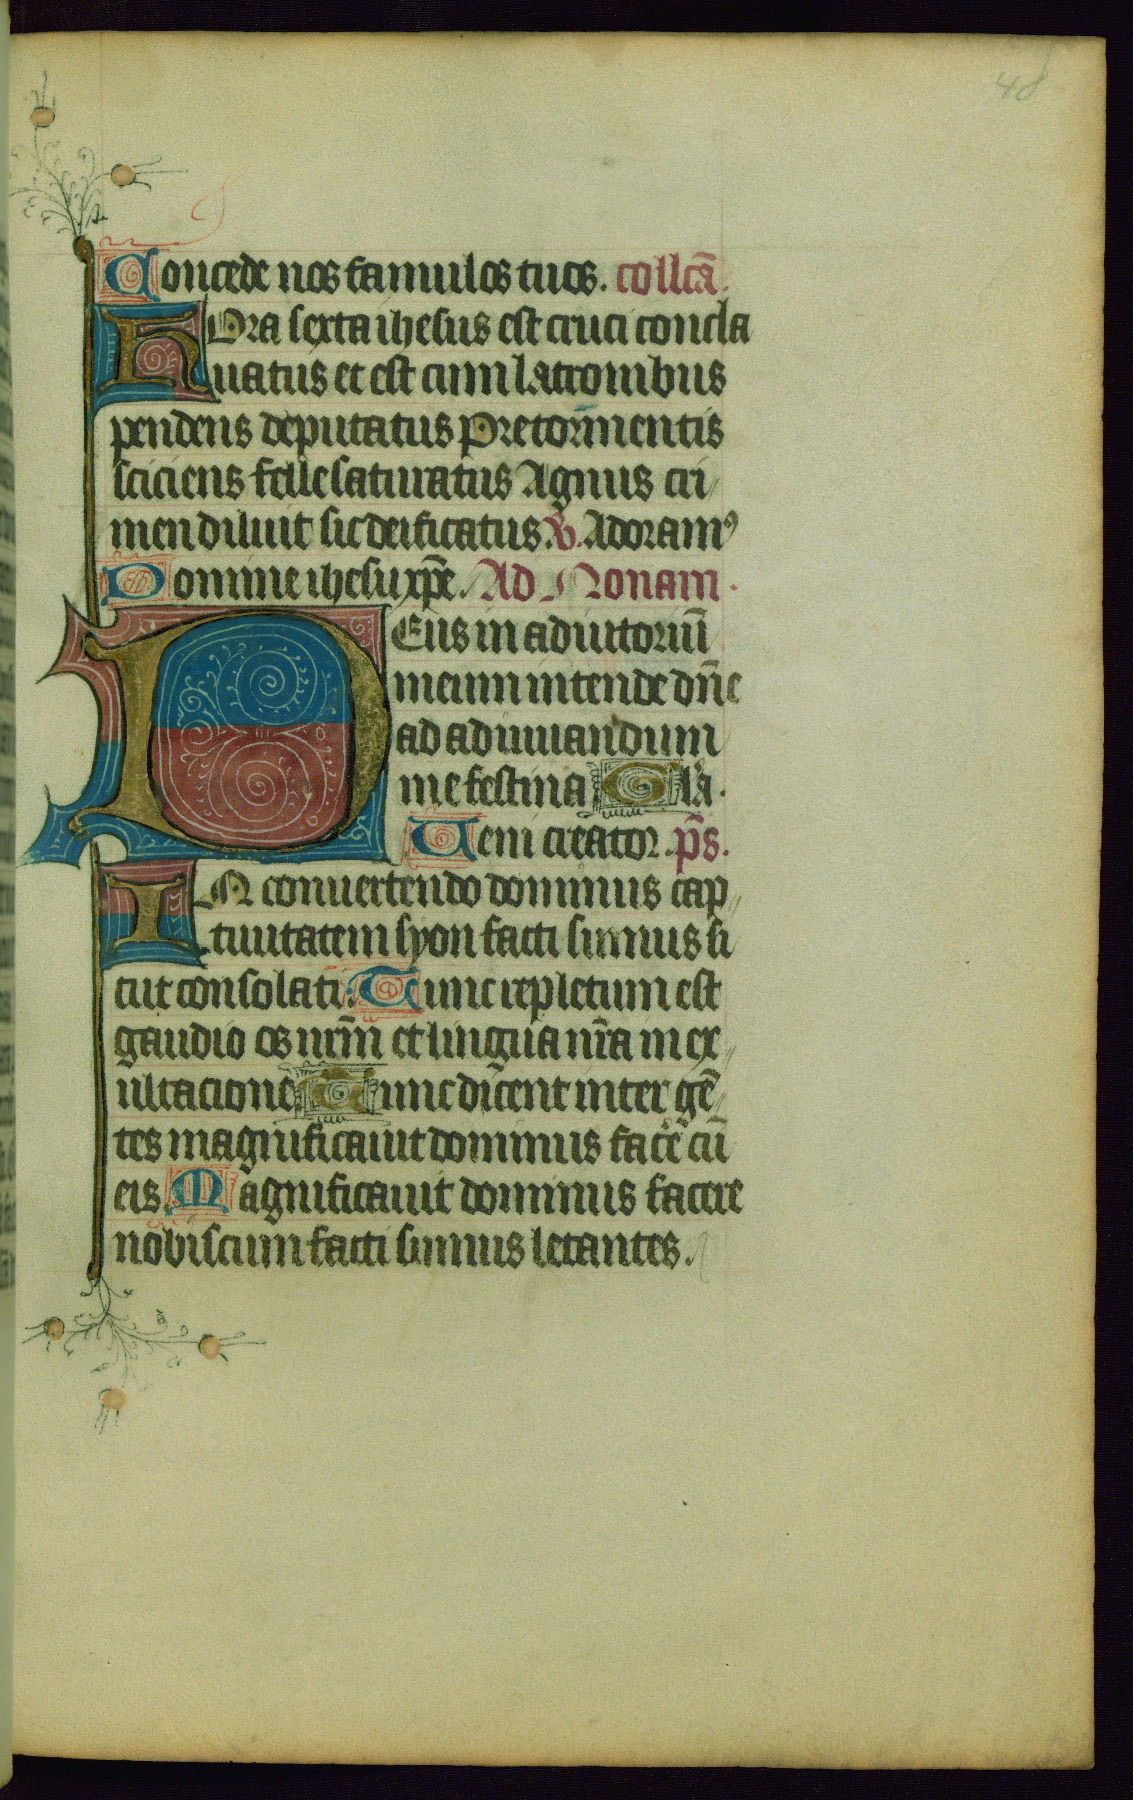 48
Concede nos famulos tuos. collcā.
HOra sexta ihesus est cruci concla
uatus et est cum latronibus
pendens deputatus Pre tormentis
sciciens felle saturatus Agnus cri
men diluit sic deificatus. V. Adoramꝰ
Domine ihesu xp̄e. Ad Nonam.
DEus in adiutoriū
meum intende dn̄e
ad adiuuandum
me festina Gl̄a.
Ueni creator. p̄s.
IN conuertendo dominus cap
tiuitatem syon facti sumus si
cut consolati: Tunc repletum est
gaudio os nr̄m et lingua nr̄a in ex
ultacione. Tunc dicent inter gē
tes magnificauit dominus fac̄e cū
eis. Magnificauit dominus facere
nobiscum facti sumus letantes.